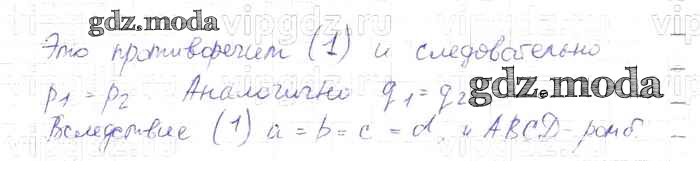 gdz.moda
Это противоречит (1) и следовательно
p₁ = p₂ Аналогично q₁ = q₂
gdz.moda
Вследствие (1) a = b = c = d, и ABCD - ромб